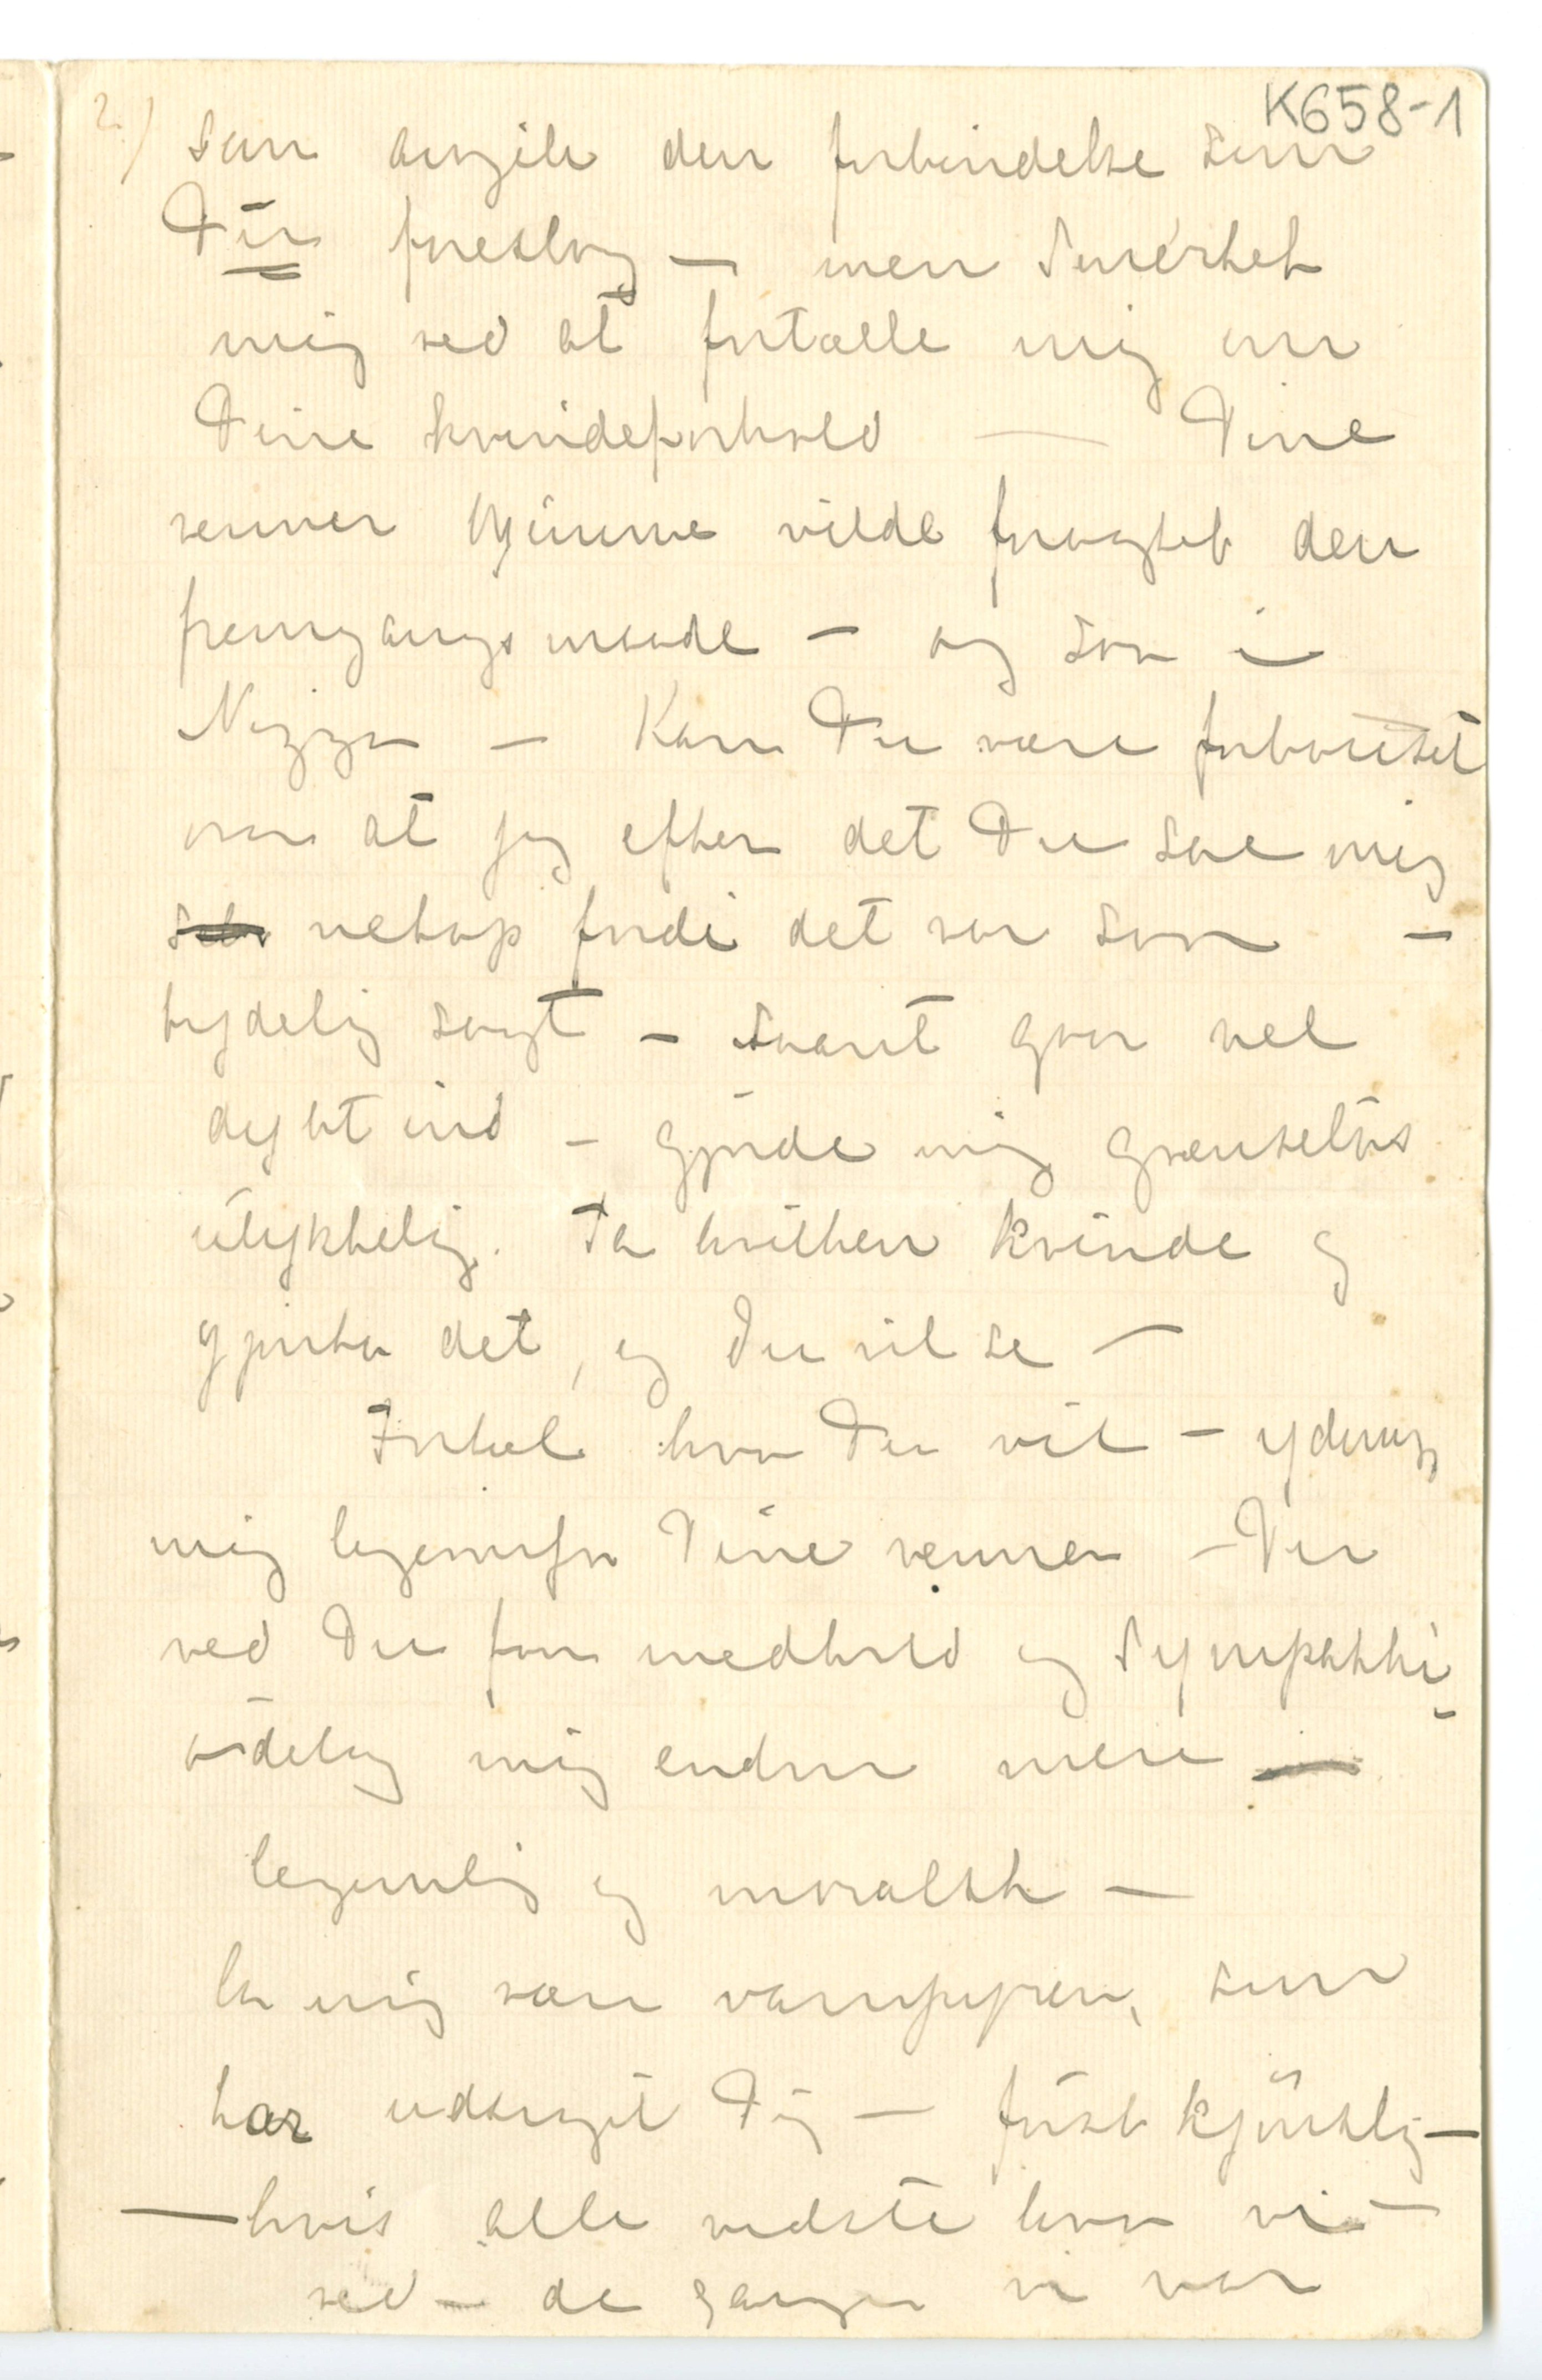 K658-1
2.)
saa angik den forbindelse som
Du foreslog – men smertet
mig ved at fortælle mig om
Dine kvindeforhold — Dine
venner hjemme vilde foragtet den
fremgangsmaade – og saa i
Nizza – Kan Du være forbauset
om at jeg efter det Du sae mig
netop fordi det var saa –
tydelig sagt – saant gaar vel
dybt ind – gjorde mig grænseløs
ulykkelig. Ta hvilken kvinde og
gjenta det, og Du vil se –
Fortæl hva Du vil – ydmyg
mig ligeoverfor Dine venner – Der
ved Du faar medhold og sympathi –
ødelæg mig endnu mere —
legemlig og moralsk –
la mig være vampyren, som
har udsuget Dig – først kjønslig –
– hvis alle vidste hva vi –
ved – de ganger vi var